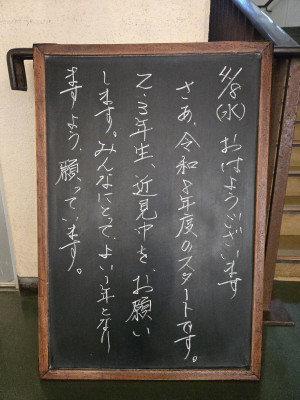 4/8(水) おはようございます
さあ、令和8年度のスタートです。
2・3年生、近見中を、お願い
します。みんなにとって、よい1年となり
ますよう、願っています。